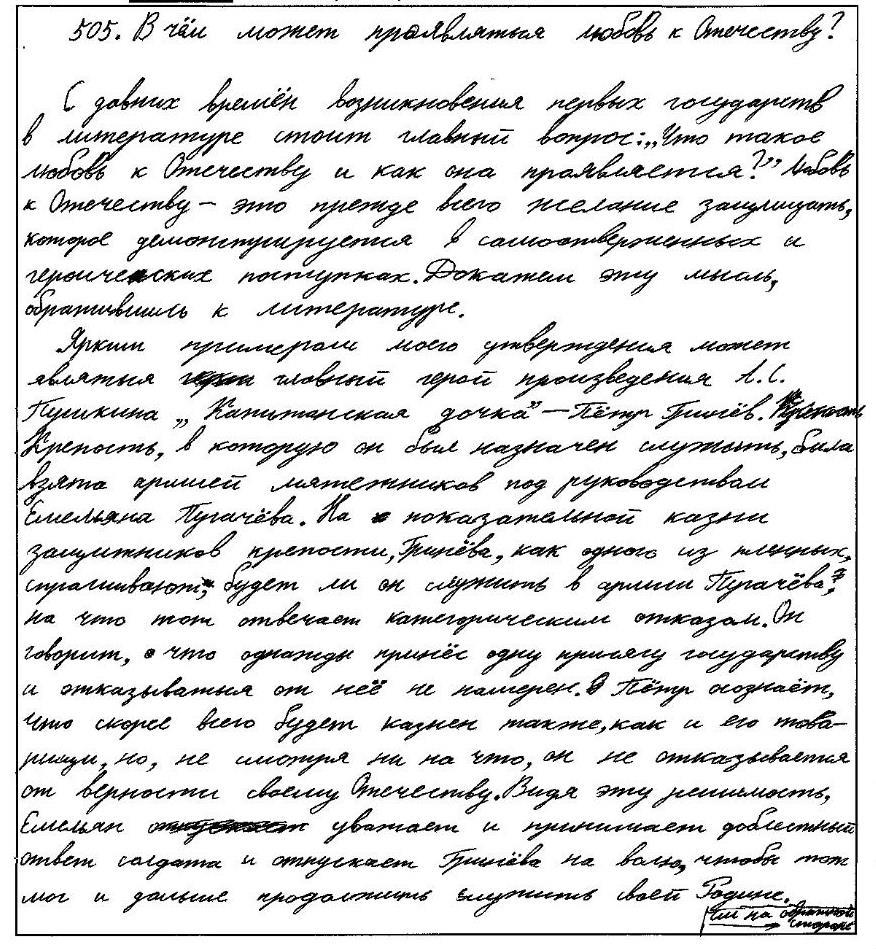 505. В чём может проявляться любовь к Отечеству?
С давних времён возникновения первых государств
в литературе стоит главный вопрос: „Что такое
любовь к Отечеству и как она проявляется?” Любовь
к Отечеству – это прежде всего желание защищать,
которое демонстрируется в самоотверженных и
героических поступках. Докажем эту мысль,
обратившись к литературе.
Ярким примером моего утверждения может
являться главный герой произведения А.С.
Пушкина „Капитанская дочка” – Пётр Гринёв.
Крепость, в которую он был назначен служить, была
взята армией мятежников под руководством
Емельяна Пугачёва. На показательной казни
защитников крепости, Гринёва, как одного из пленных,
спрашивают, будет ли он служить в армии Пугачёва,
на что тот отвечает категорическим отказом. Он
говорит, что однажды принёс одну присягу государству
и отказываться от неё не намерен. Пётр осознаёт,
что скорее всего будет казнен также, как и его това-
рищи, но, не смотря ни на что, он не отказывается
от верности своему Отечеству. Видя эту решимость,
Емельян уважает и принимает доблестный
ответ солдата и отпускает Гринёва на волю, чтобы тот
мог и дальше продолжить служить своей Родине.
см на обратной
стороне